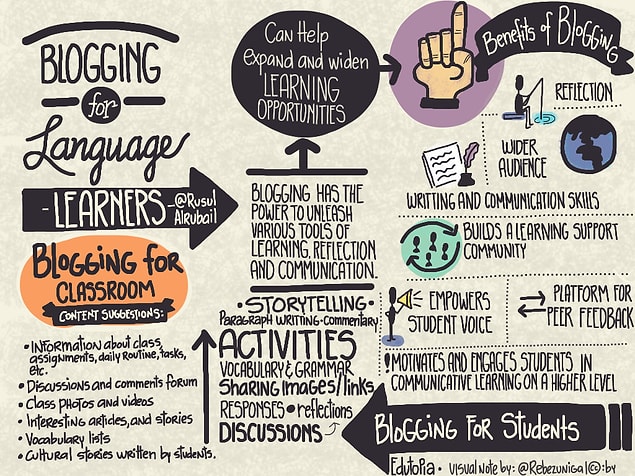 BLOGGING
for
Language
- LEARNERS - @Rusul
Alrubail
BLOGGING FOR
CLASSROOM
CONTENT SUGGESTIONS:
• INFORMATION about class,
assignments, daily routine, tasks,
etc.
• Discussions and comments forum
• Class photos and videos
• Interesting articles, and stories
• Vocabulary lists
• Cultural stories written by students.
Can Help
expand and widen
LEARNING
OPPORTUNITIES
BLOGGING HAS THE
POWER TO UNLEASH
VARIOUS TOOLS OF
LEARNING, REFLECTION
AND COMMUNICATION.
• STORYTELLING •
PARAGRAPH WRITTING - COMMENTARY
ACTIVITIES
VOCABULARY & GRAMMAR
SHARING IMAGES/LINKS
RESPONSES • reflections
DISCUSSIONS
Benefits of BLOGGING
REFLECTION
WIDER
AUDIENCE
WRITTING AND COMMUNICATION SKILLS
BUILDS A LEARNING SUPPORT
COMMUNITY
EMPOWERS
STUDENT VOICE
PLATFORM FOR
PEER FEEDBACK
! MOTIVATES AND ENGAGES STUDENTS IN
COMMUNICATIVE LEARNING ON A HIGHER LEVEL
BLOGGING FOR STUDENTS
Edutopia • VISUAL NOTE by: @Rebezuniga | © by